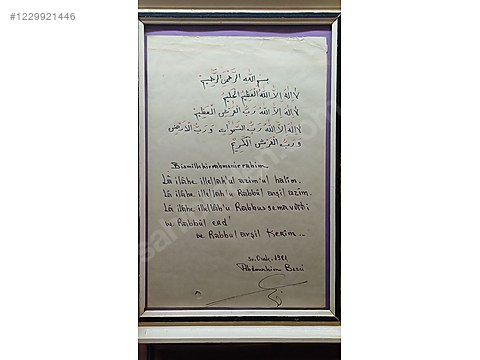 #1229921446
بسم الله الرحمن الرحيم
لا إله إلا الله العظيم الحليم
لا إله إلا الله رب العرش العظيم
لا إله إلا الله رب السموات و رب الارض
و رب العرش الكريم
Bismillahirrahmanirrahim
Lâ ilâhe illellah'ul azim'ul halim.
Lâ ilâhe illellah'u Rabbül arşil azim.
Lâ ilâhe illellâh'u Rabbussemavâti
ve Rabbül erd'
ve Rabbül arşil Kerim..
30. Ocak. 1981